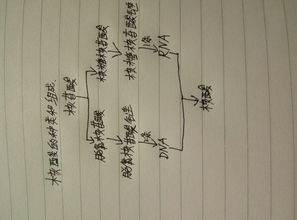 核酸的种类和组成
核苷酸
核糖核苷酸
脱氧核苷酸
核糖核苷酸链
脱氧核苷酸链
RNA
DNA
核酸